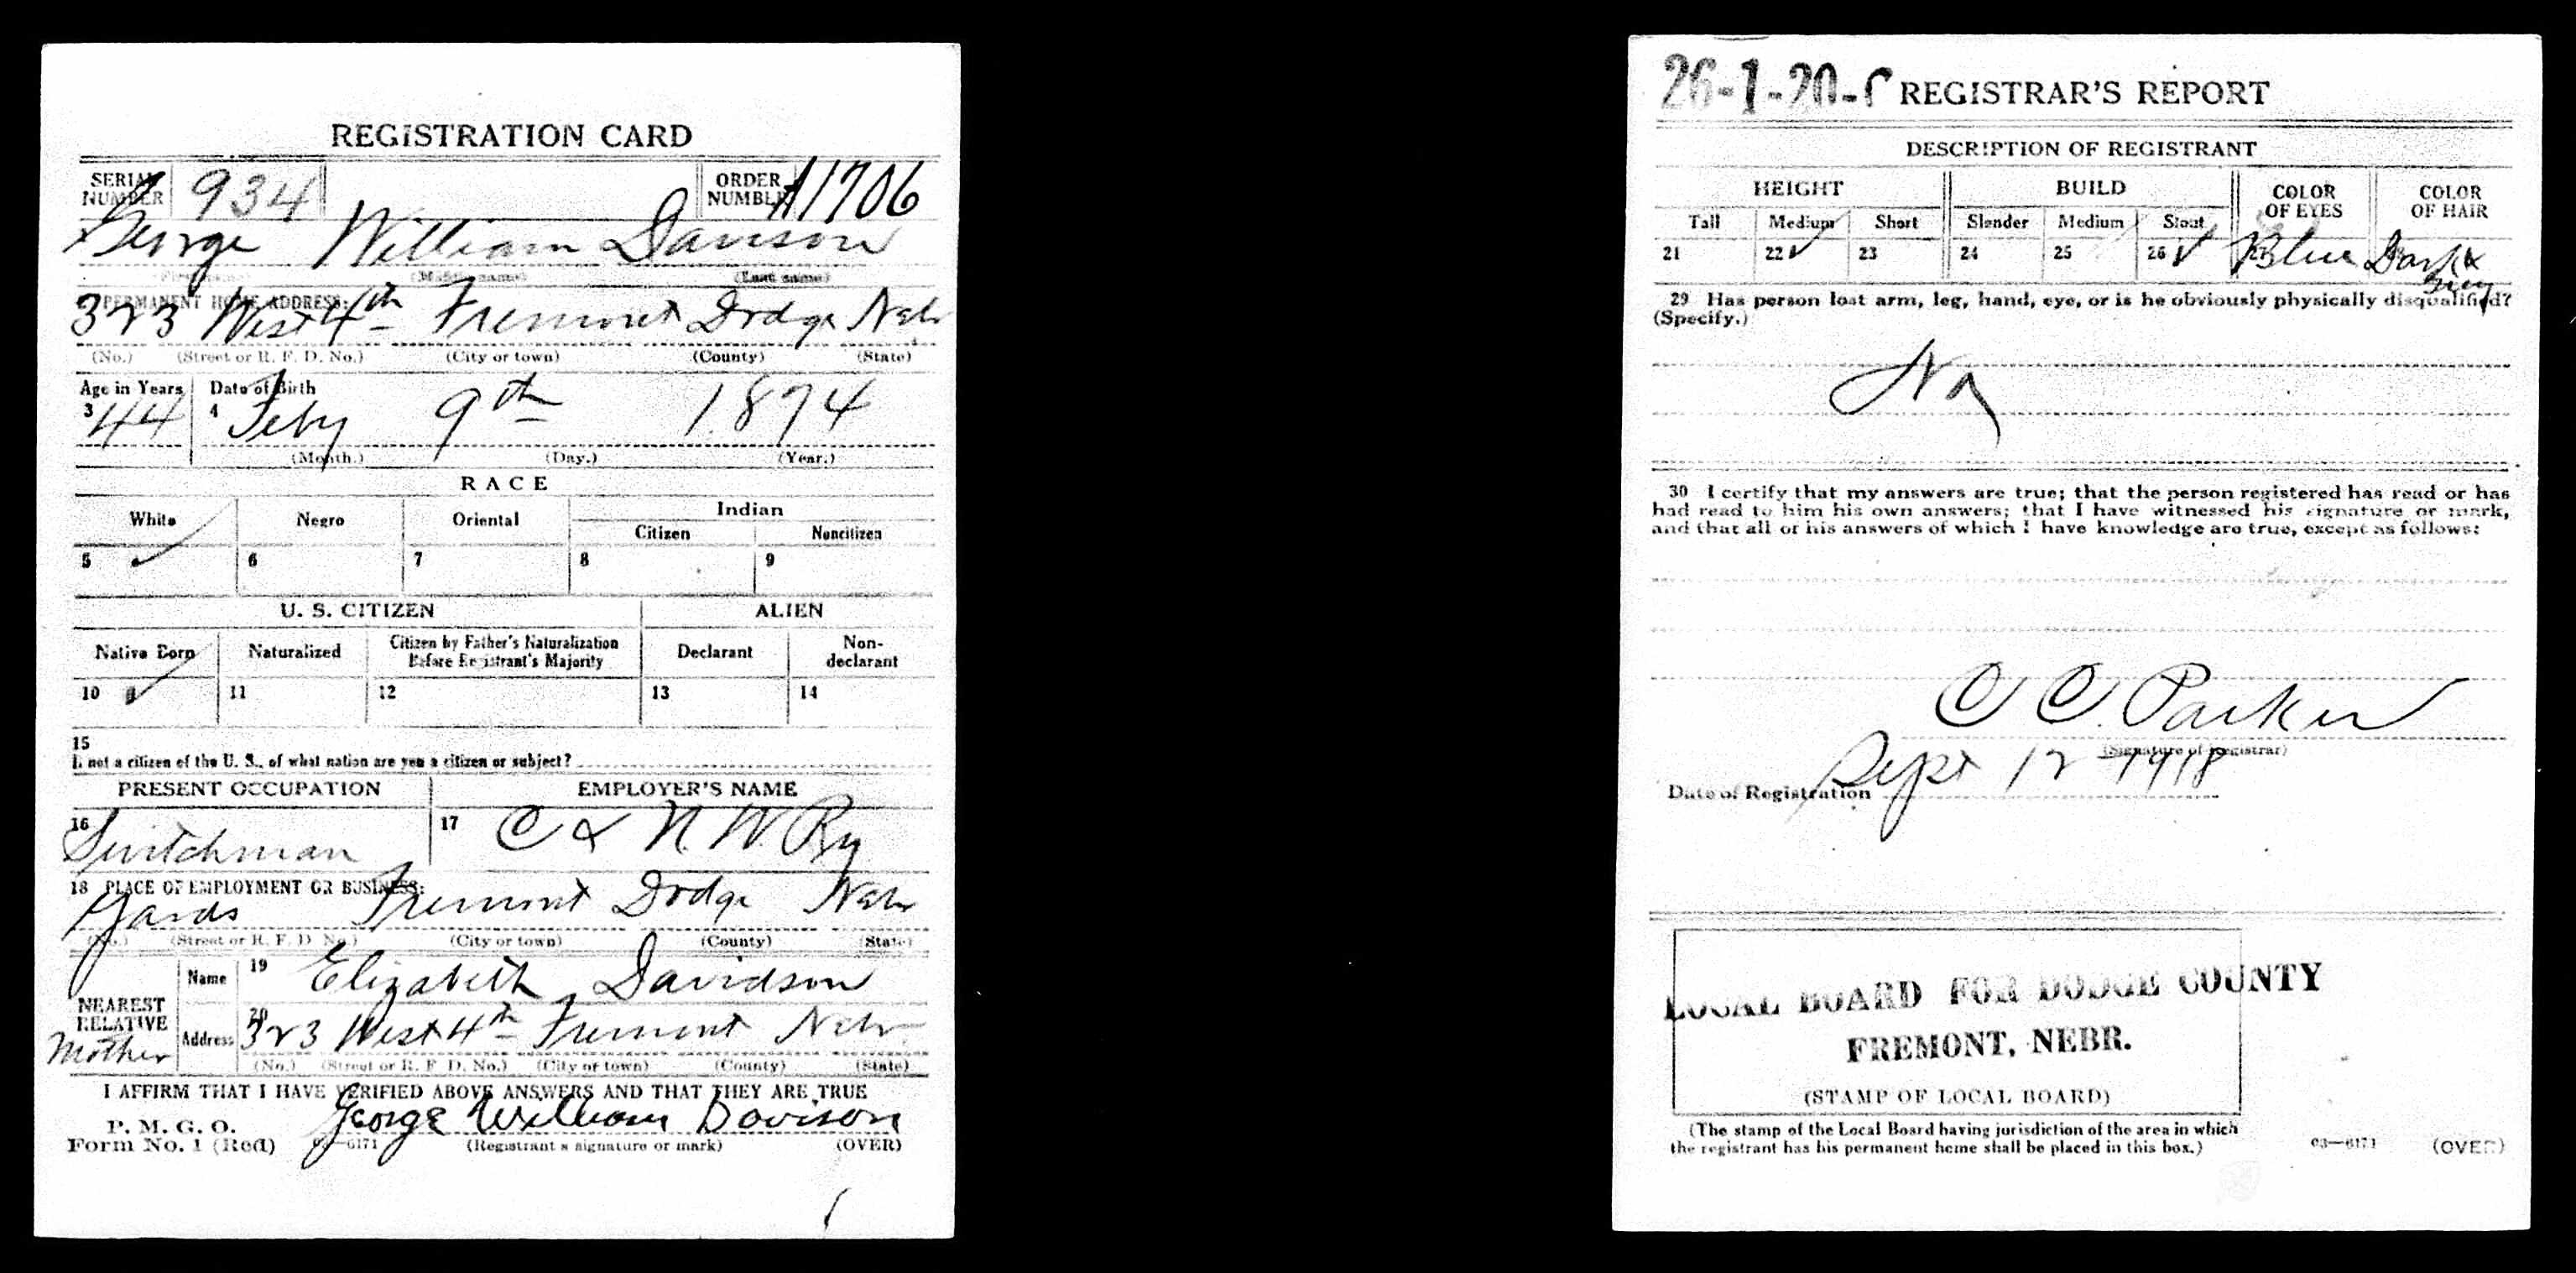 REGISTRATION CARD
SERIAL NUMBER 934 ORDER NUMBER A1706
George William Davison
(First name) (Middle name) (Last name)
PERMANENT HOME ADDRESS:
323 West 4th Fremont Dodge Nebr
(No.) (Street or R. F. D. No.) (City or town) (County) (State)
Age in Years Date of Birth
3 44 4 Feby 9th 1874
(Month.) (Day.) (Year.)
RACE
White Negro Oriental Indian
Citizen Noncitizen
5 ✓ 6 7 8 9
U. S. CITIZEN ALIEN
Native Born Naturalized Citizen by Father's Naturalization Before Registrant's Majority Declarant Non-declarant
10 ✓ 11 12 13 14
15
If not a citizen of the U. S., of what nation are you a citizen or subject?
PRESENT OCCUPATION EMPLOYER'S NAME
16 Switchman 17 C & N. W. Ry
18 PLACE OF EMPLOYMENT OR BUSINESS:
Yards Fremont Dodge Nebr
(No.) (Street or R. F. D. No.) (City or town) (County) (State)
Name 19 Elizabeth Davidson
NEAREST RELATIVE
Mother
Address 20 323 West 4th Fremont Nebr
(No.) (Street or R. F. D. No.) (City or town) (County) (State)
I AFFIRM THAT I HAVE VERIFIED ABOVE ANSWERS AND THAT THEY ARE TRUE
P. M. G. O.
Form No. 1 (Red) 03—6171 George William Davison
(Registrant's signature or mark) (OVER)
26-1-20-C REGISTRAR'S REPORT
DESCRIPTION OF REGISTRANT
HEIGHT BUILD COLOR OF EYES COLOR OF HAIR
Tall Medium Short Slender Medium Stout
21 22 ✓ 23 24 25 26 ✓ Blue Dark & Grey
29 Has person lost arm, leg, hand, eye, or is he obviously physically disqualified?
(Specify.)
No
30 I certify that my answers are true; that the person registered has read or has
had read to him his own answers; that I have witnessed his signature or mark,
and that all of his answers of which I have knowledge are true, except as follows:
C C. Parker
(Signature of Registrar)
Date of Registration Sept 12 1918
LOCAL BOARD FOR DODGE COUNTY
FREMONT, NEBR.
(STAMP OF LOCAL BOARD)
(The stamp of the Local Board having jurisdiction of the area in which
the registrant has his permanent home shall be placed in this box.)
03—6171 (OVER)